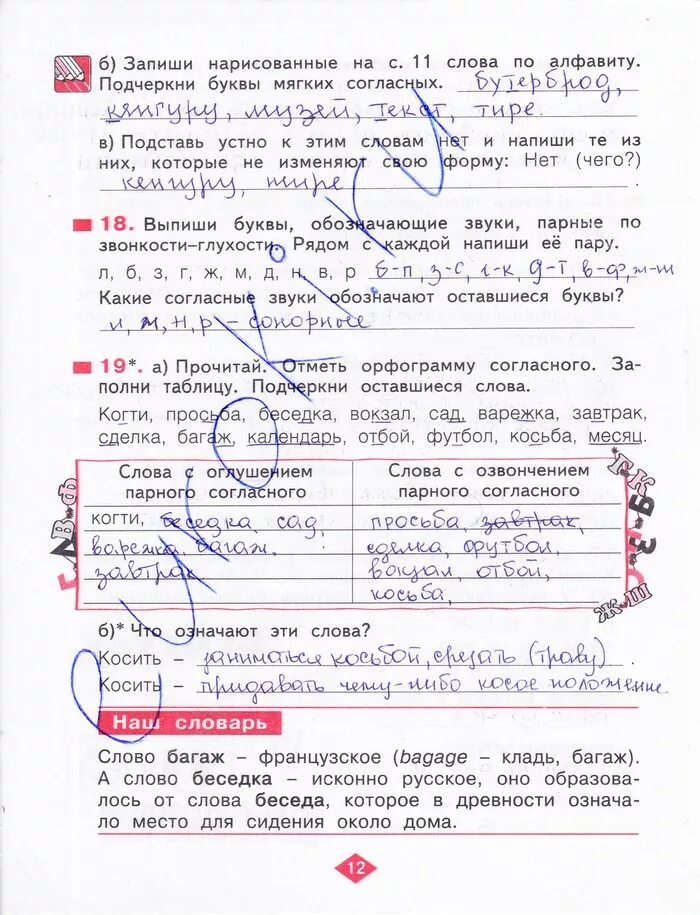 б) Запиши нарисованные на с. 11 слова по алфавиту.
Подчеркни буквы мягких согласных. бутерброд,
кенгуру, музей, текст, тире.
в) Подставь устно к этим словам нет и напиши те из
них, которые не изменяют свою форму: Нет (чего?)
кенгуру, тире
18. Выпиши буквы, обозначающие звуки, парные по
звонкости–глухости. Рядом с каждой напиши её пару.
л, б, з, г, ж, м, д, н, в, р б-п, з-с, г-к, д-т, в-ф, ж-ш
Какие согласные звуки обозначают оставшиеся буквы?
л, м, н, р – сонорные
19*. а) Прочитай. Отметь орфограмму согласного. За-
полни таблицу. Подчеркни оставшиеся слова.
Когти, просьба, беседка, вокзал, сад, варежка, завтрак,
сделка, багаж, календарь, отбой, футбол, косьба, месяц.
Слова с оглушением
парного согласного
Слова с озвончением
парного согласного
когти, беседка, сад,
варежка, багаж,
завтрак
просьба, завтрак,
сделка, футбол,
вокзал, отбой,
косьба,
В-Ф
Г-К
Б
З-С
Ж-Ш
б)* Что означают эти слова?
Косить – заниматься косьбой, срезать (траву)
Косить – придавать чему-либо косое положение
Наш словарь
Слово багаж – французское (bagage – кладь, багаж).
А слово беседка – исконно русское, оно образова-
лось от слова беседа, которое в древности означа-
ло место для сидения около дома.
12